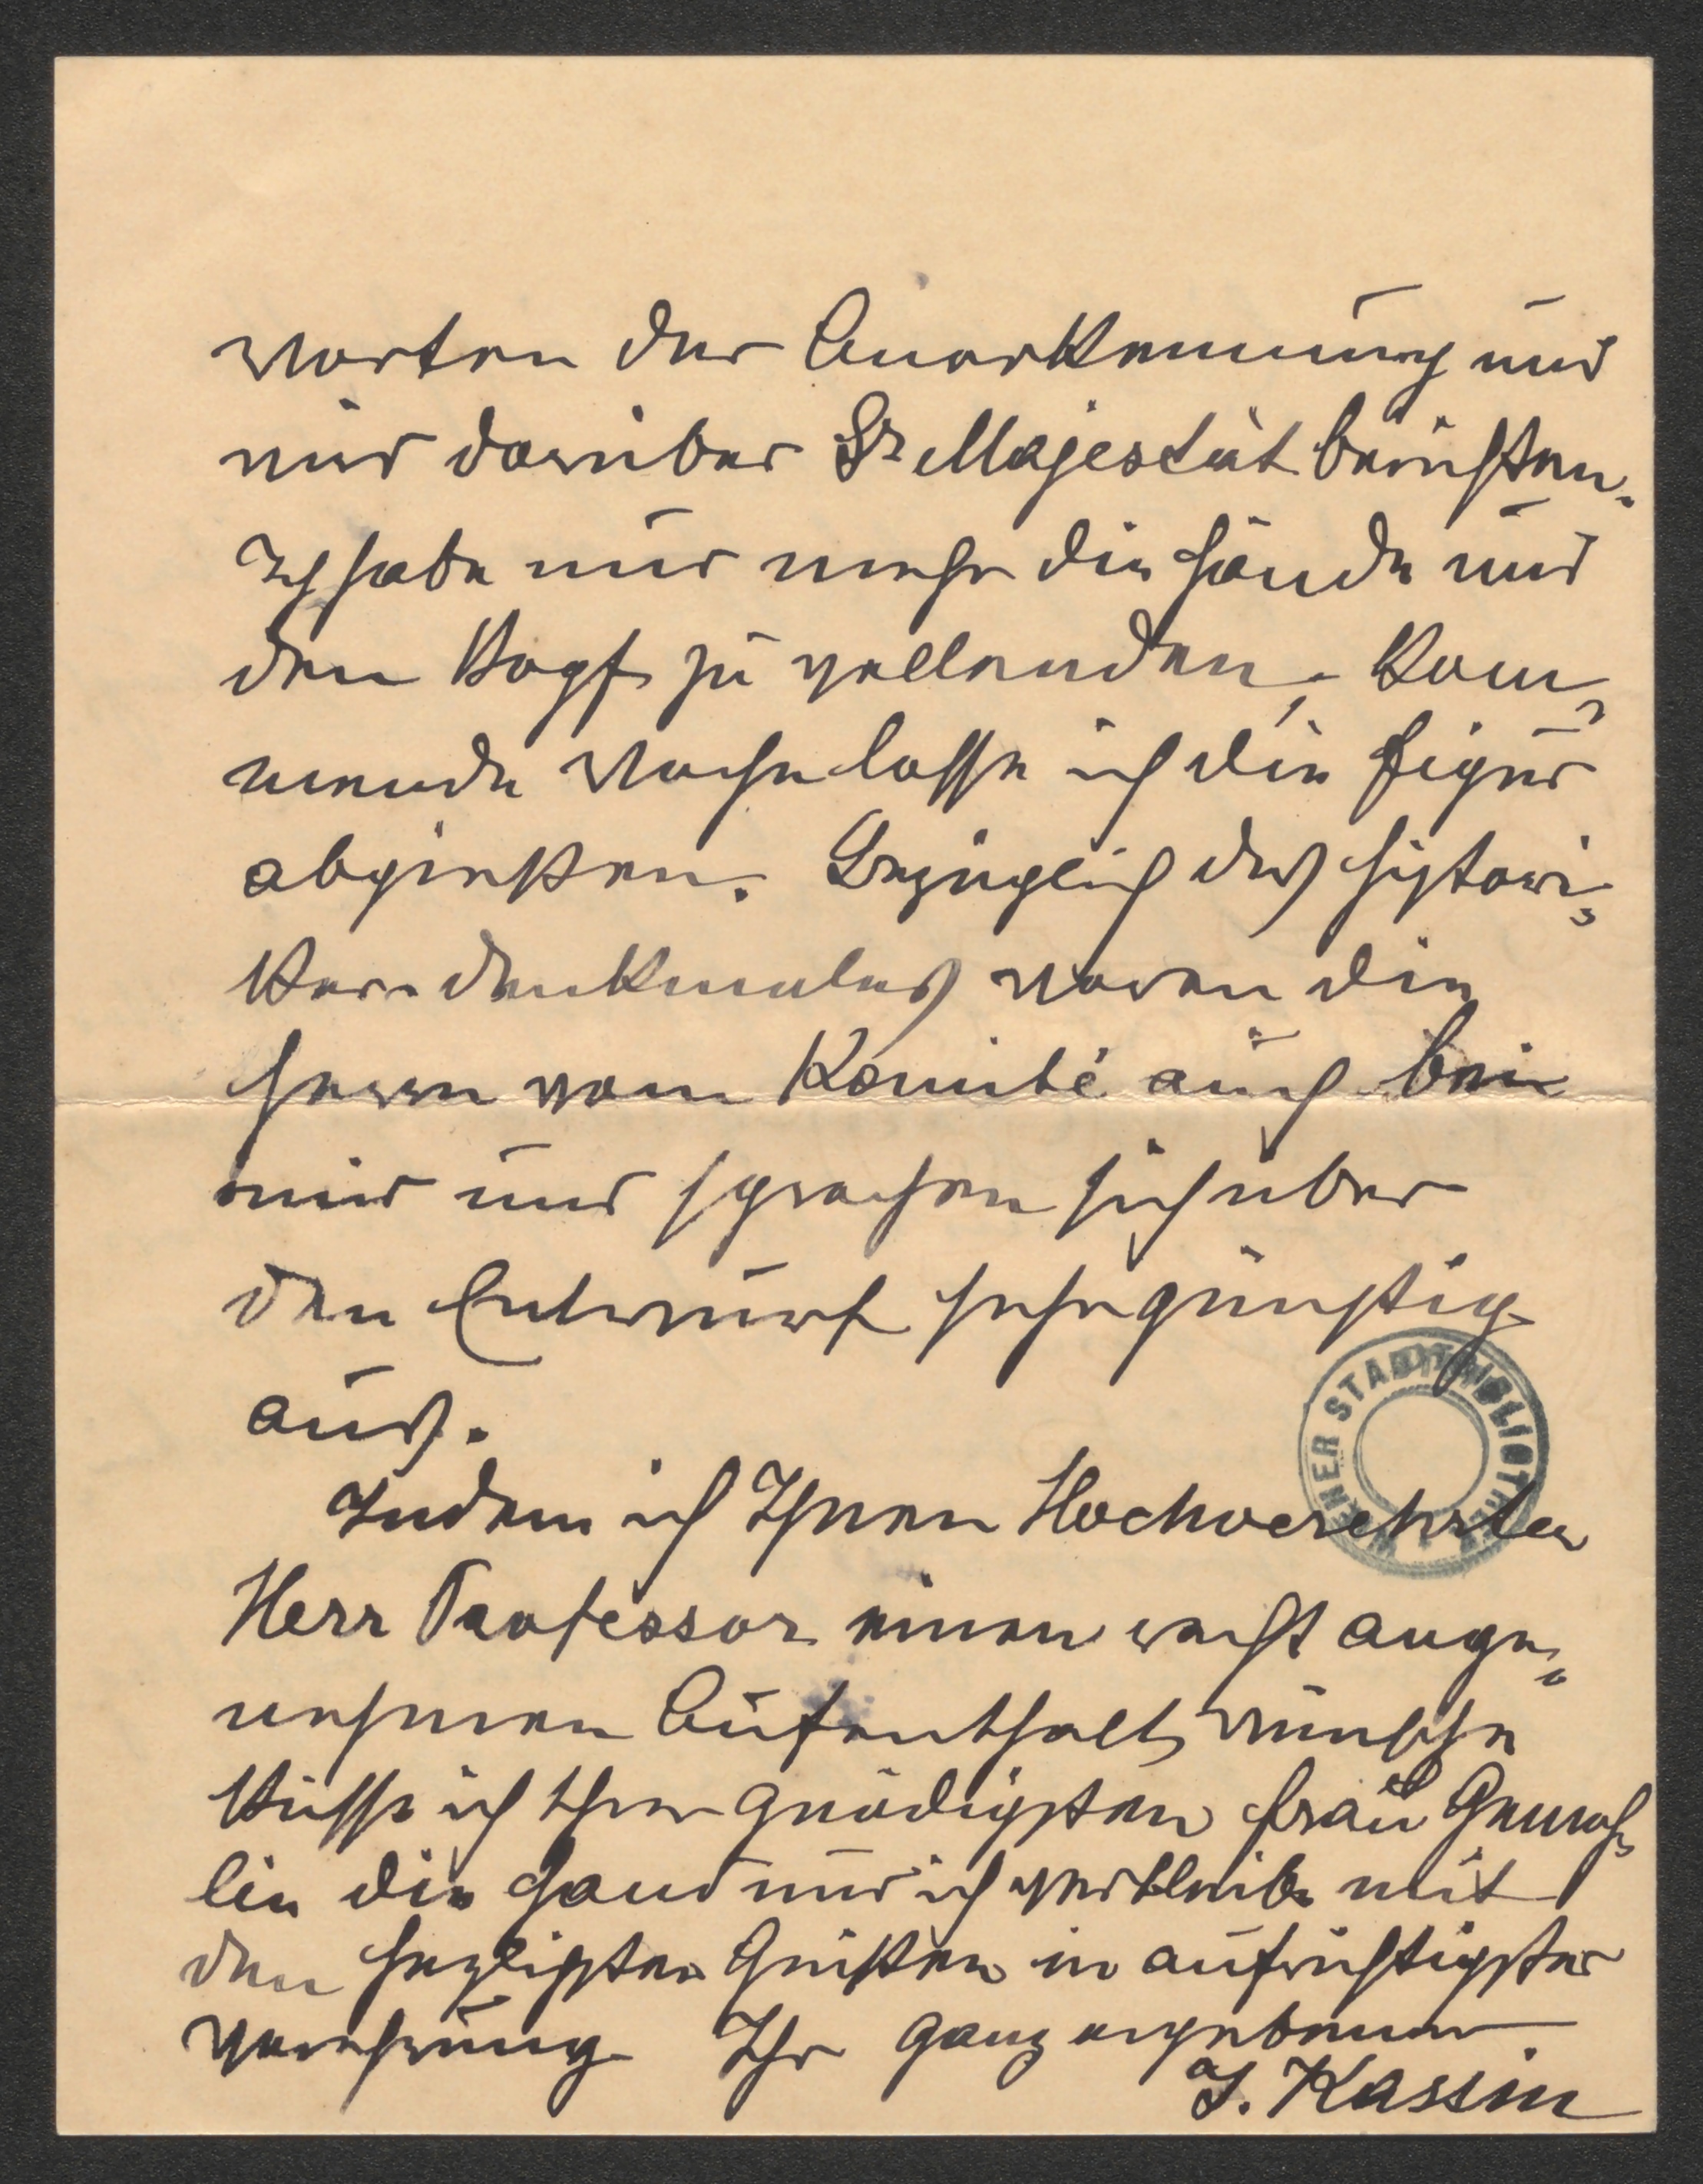 Worten der Anerkennung und
wird darüber Sr Majestät berichten.
Ich habe nur mehr die Hände und
den Kopf zu vollenden, Kom„
mende Woche lasse ich die Figur
abgießen. Bezüglich des Histori„
ker-Denkmales waren die
Herrn vom Komité auch bei
mir und sprachen sich über
den Entwurf sehr günstig
aus.
WIENER STADTBIBLIOTHEK
Indem ich Ihnen Hochverehrter
Herr Professor einen recht ange„
nehmen Aufenthalt wünsche
küsse ich Ihrer gnädigsten Frau Gemah„
lin die Hand und ich verbleibe mit
den herzlichsten Grüßen in aufrichtigster
Verehrung Ihr ganz ergebener
J. Kassin